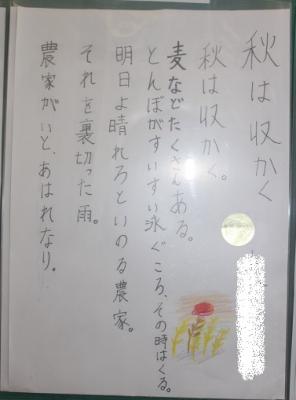 秋は収かく
秋は収かく。
麦などたくさんある。
とんぼがすいすい泳ぐころ、その時はくる。
明日よ晴れろといのる農家。
それを裏切った雨。
農家がいと、あはれなり。